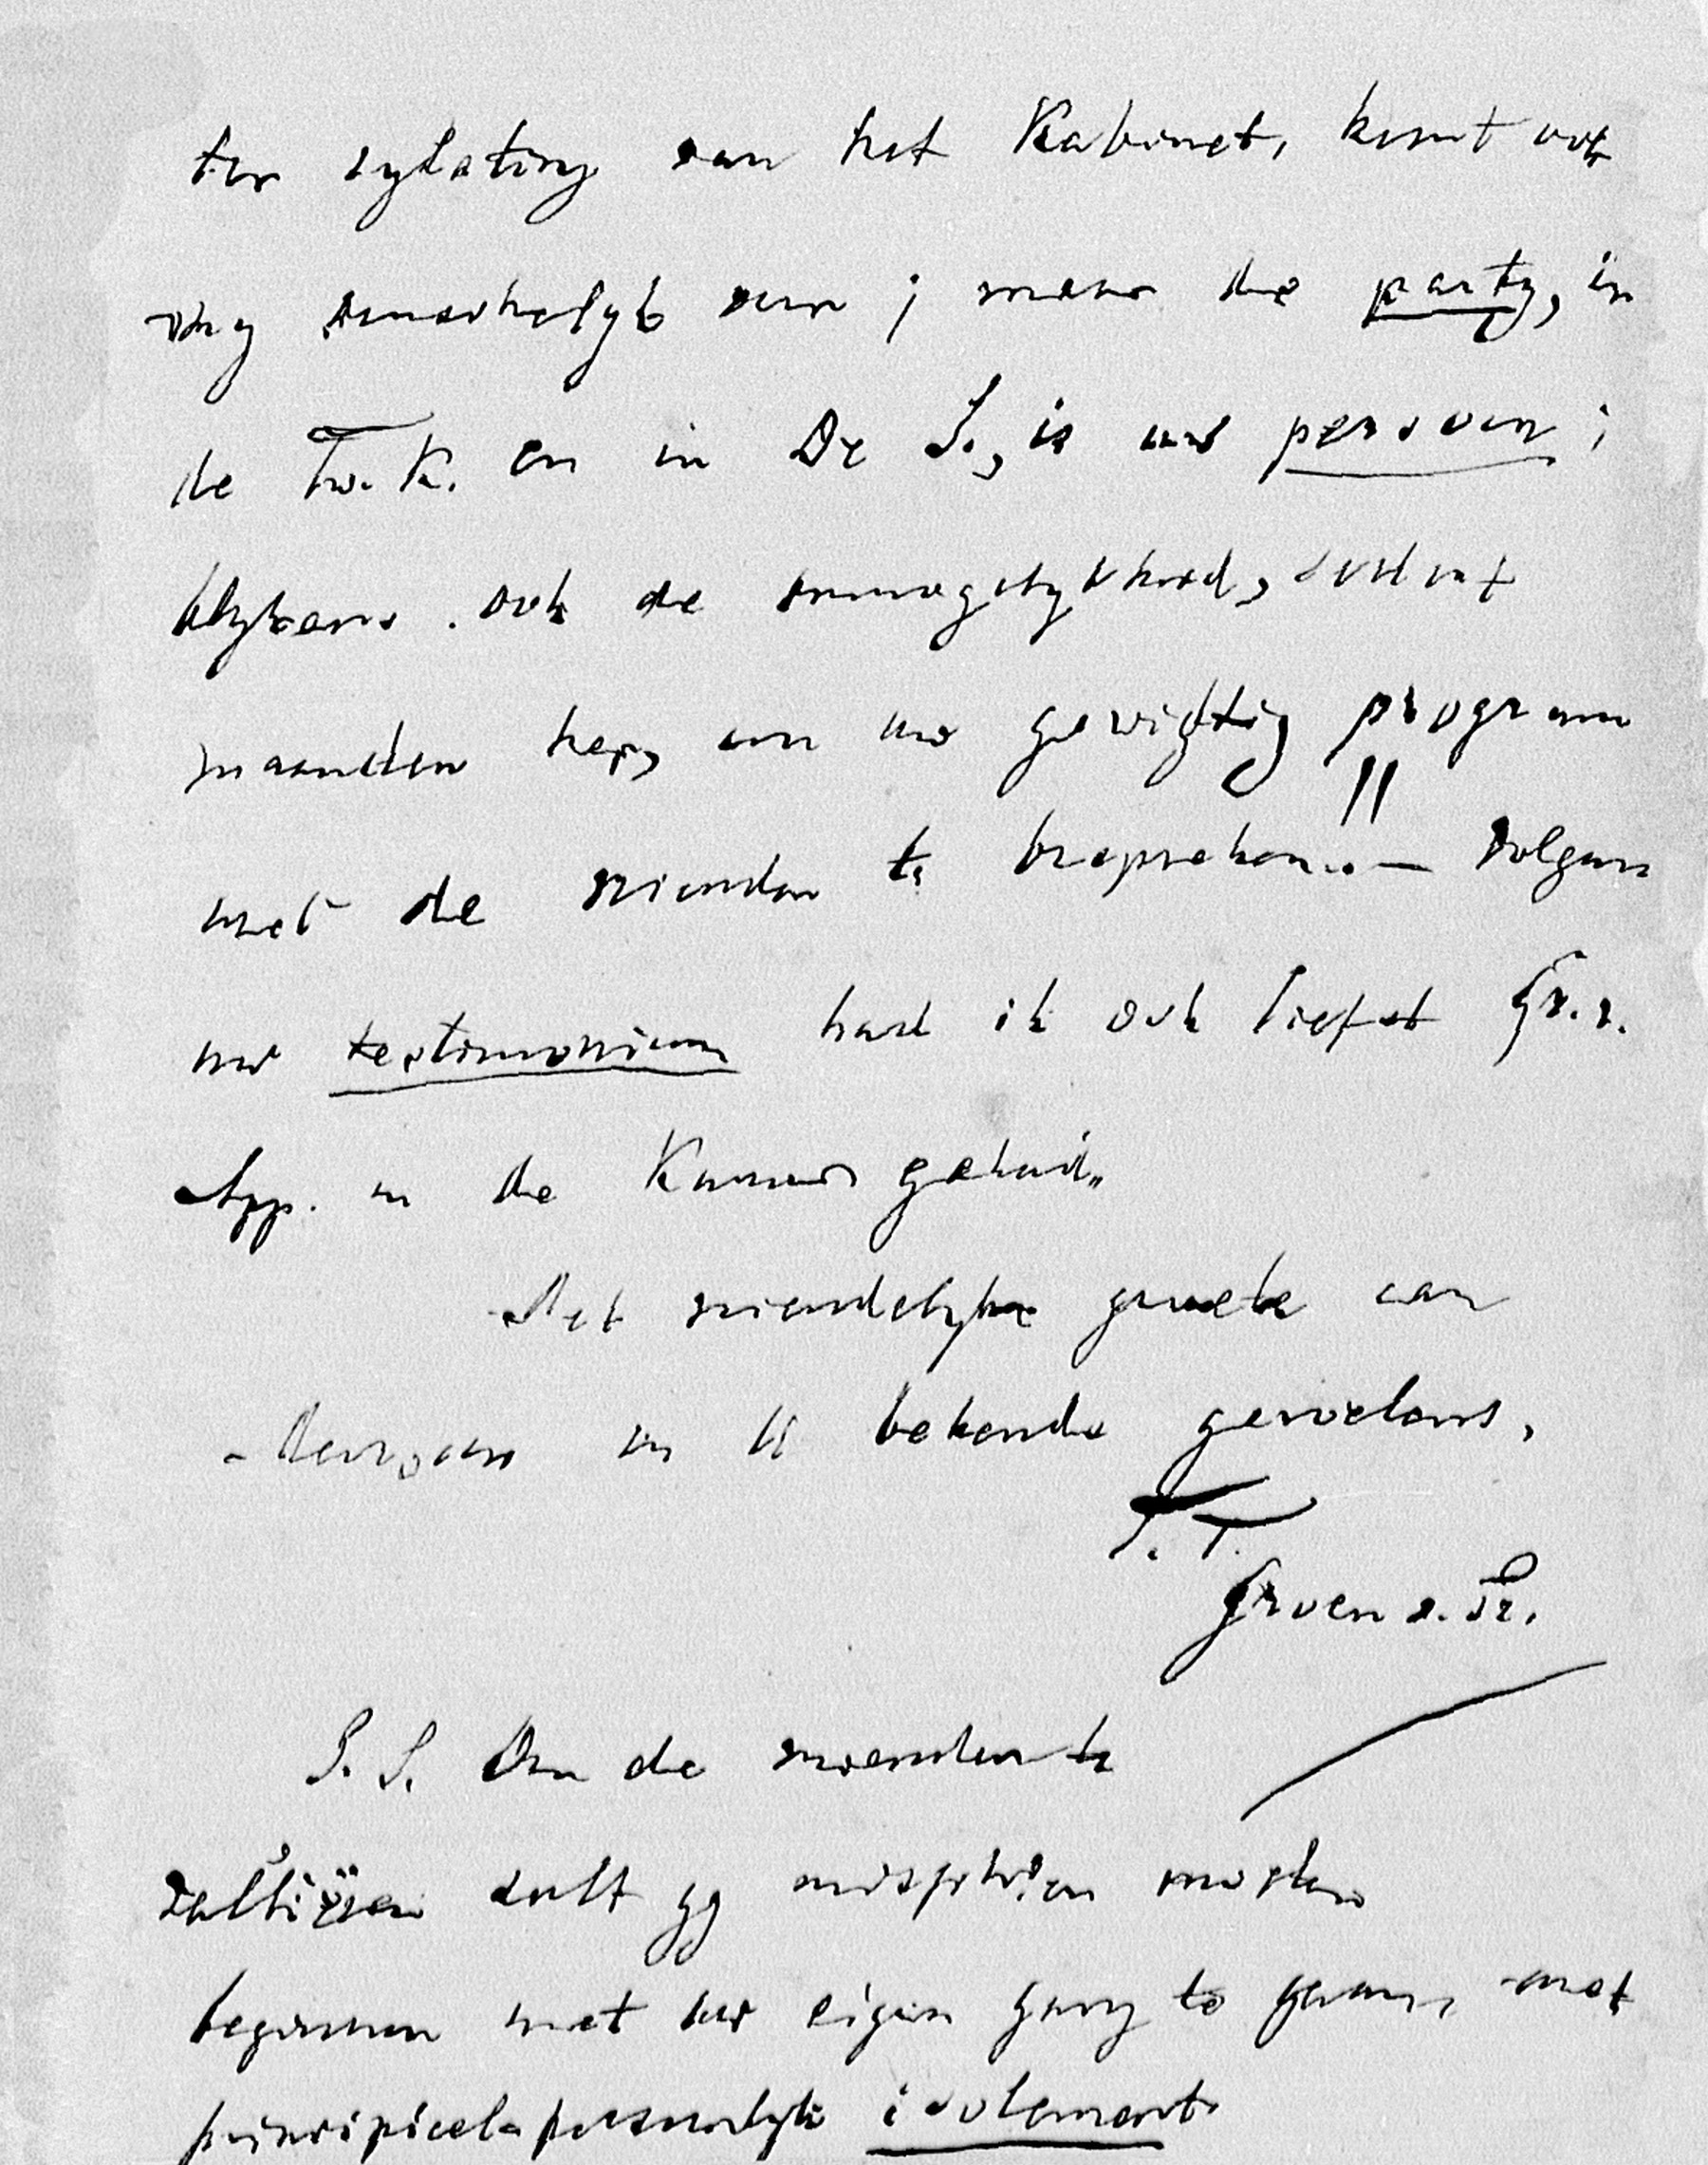 ter zylating van het Kabinet, komt ook
my onmerkelyk voor; maar die party, in
de Tw. K. en in De S., is uw persoon;
blykens ook de onmogelykheid, sedert
maanden her, om uw gewigtig program
met de vrienden te bespreken... — Volgens
uw testimonium had ik ook liefst Gr. v.
App. in de Kamer gehad.
Met vriendelyke groete van
Mevrouw en U bekende gevoelens,
T. T.
Groen v. Pr.
P.S. Om de vrienden te
ralliëren zult gy misschien moeten
beginnen met uw eigen gang te gaan, met
principieel-persoonlyk isolement